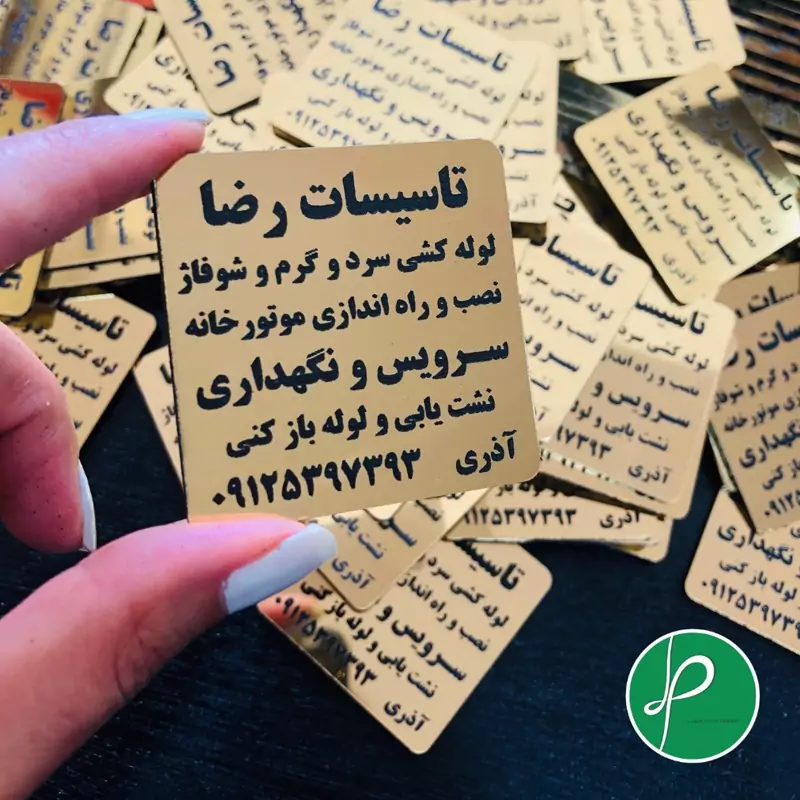 تاسیسات رضا
لوله کشی سرد و گرم و شوفاژ
نصب و راه اندازی موتورخانه
سرویس و نگهداری
نشت یابی و لوله باز کنی
آذری ۰۹۱۲۵۳۹۷۳۹۳